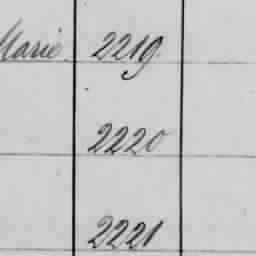 Marie. 2219.
2220
2221